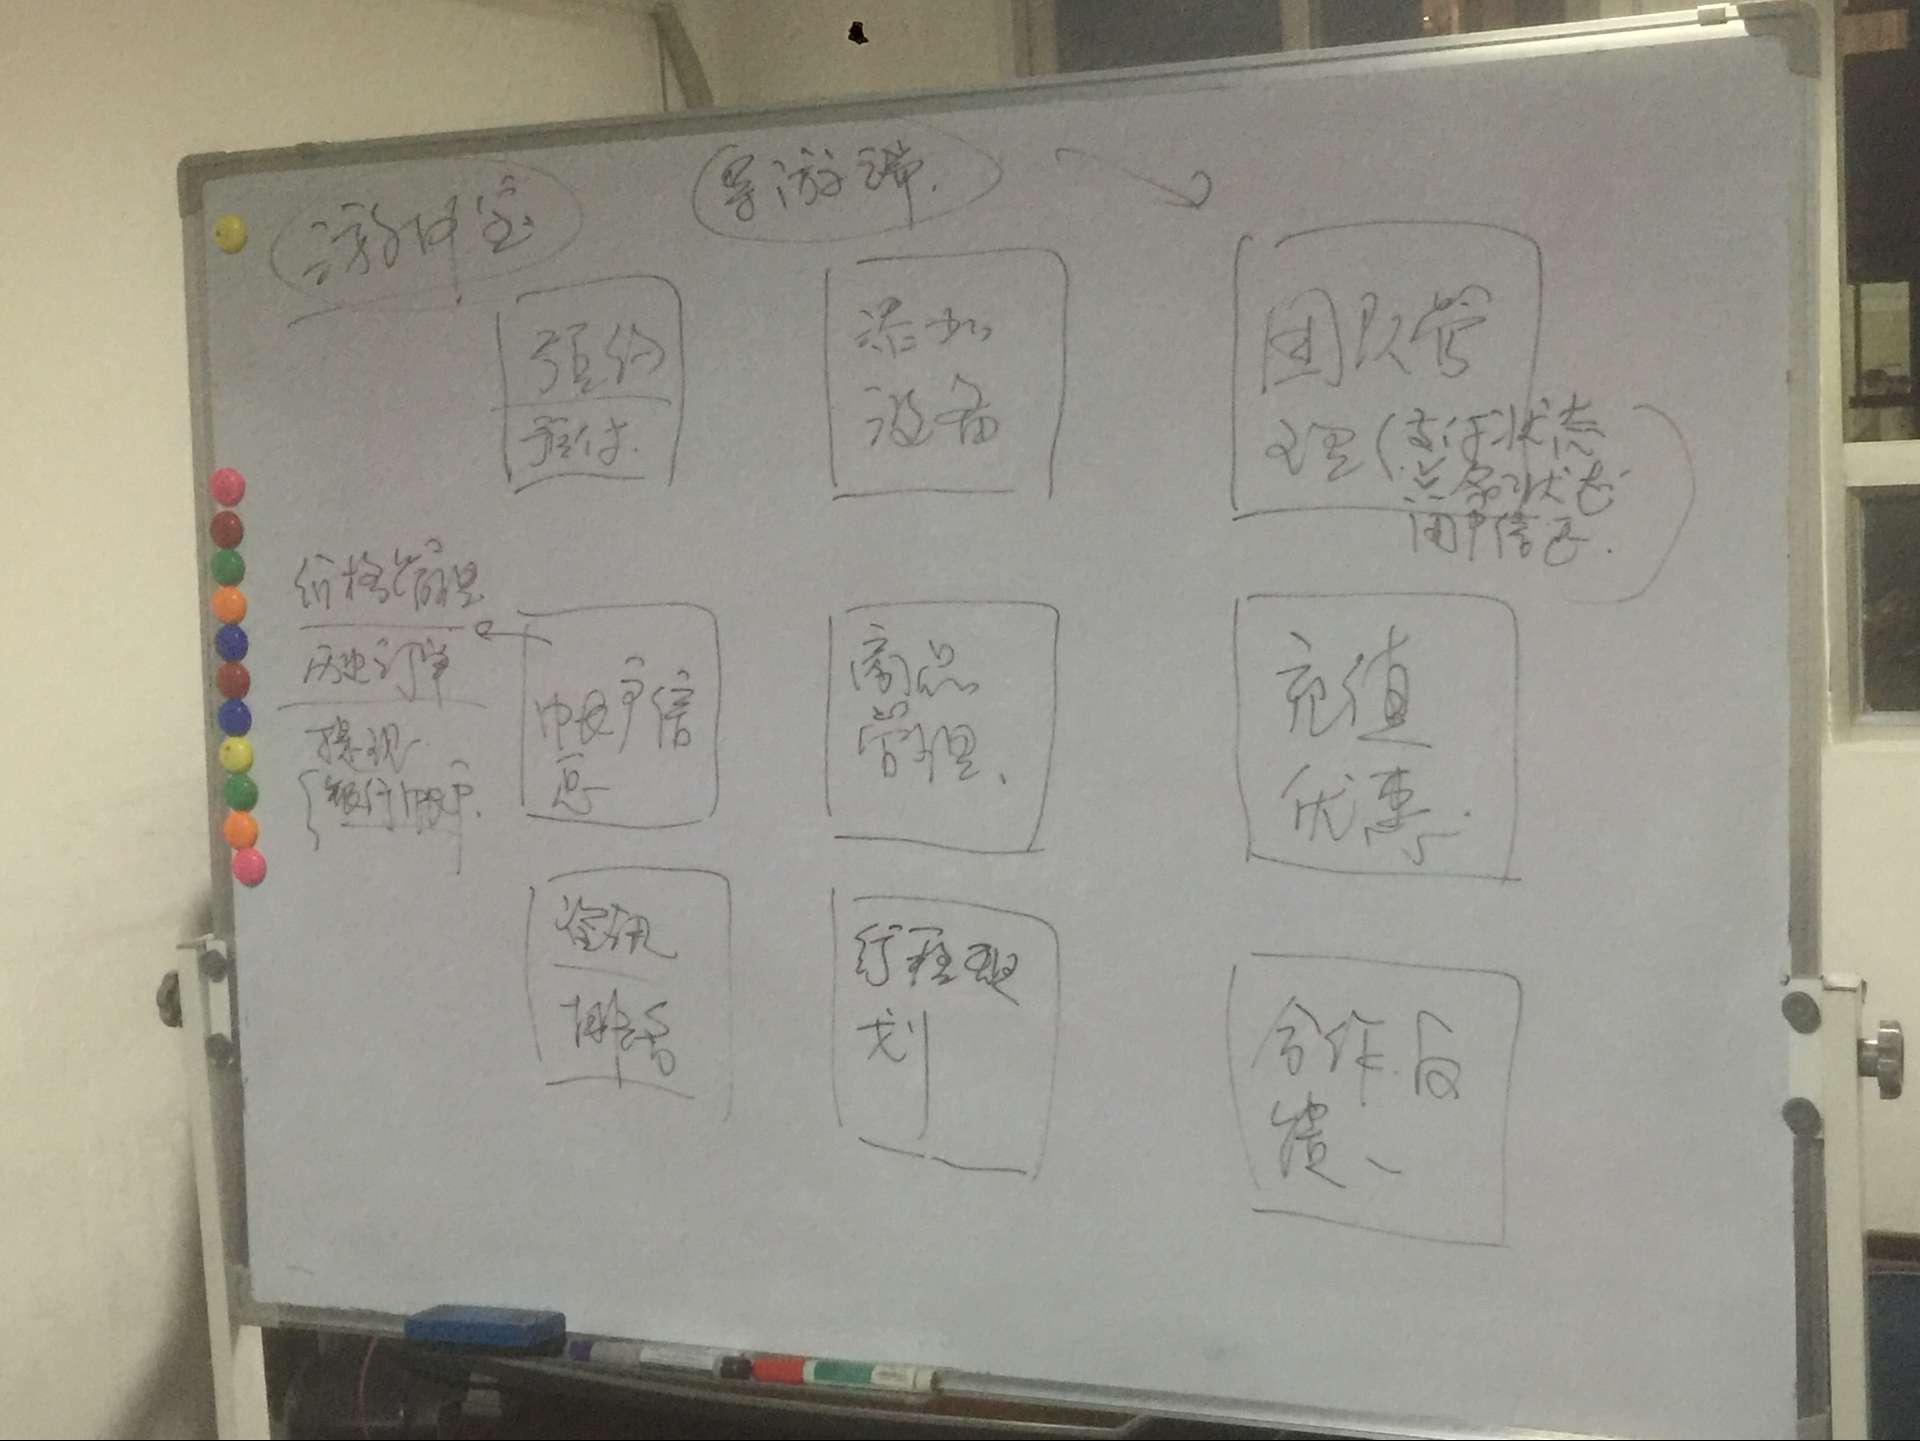 导游端.
预约
预付.
添加
设备
团队管
理(支付状态
设备状态
用户信息.
价格管理
历史订单
提现
银行帐户.
帐户信
息
商品
管理、
充值
优惠.
资讯
行程规
划
合作反
馈、